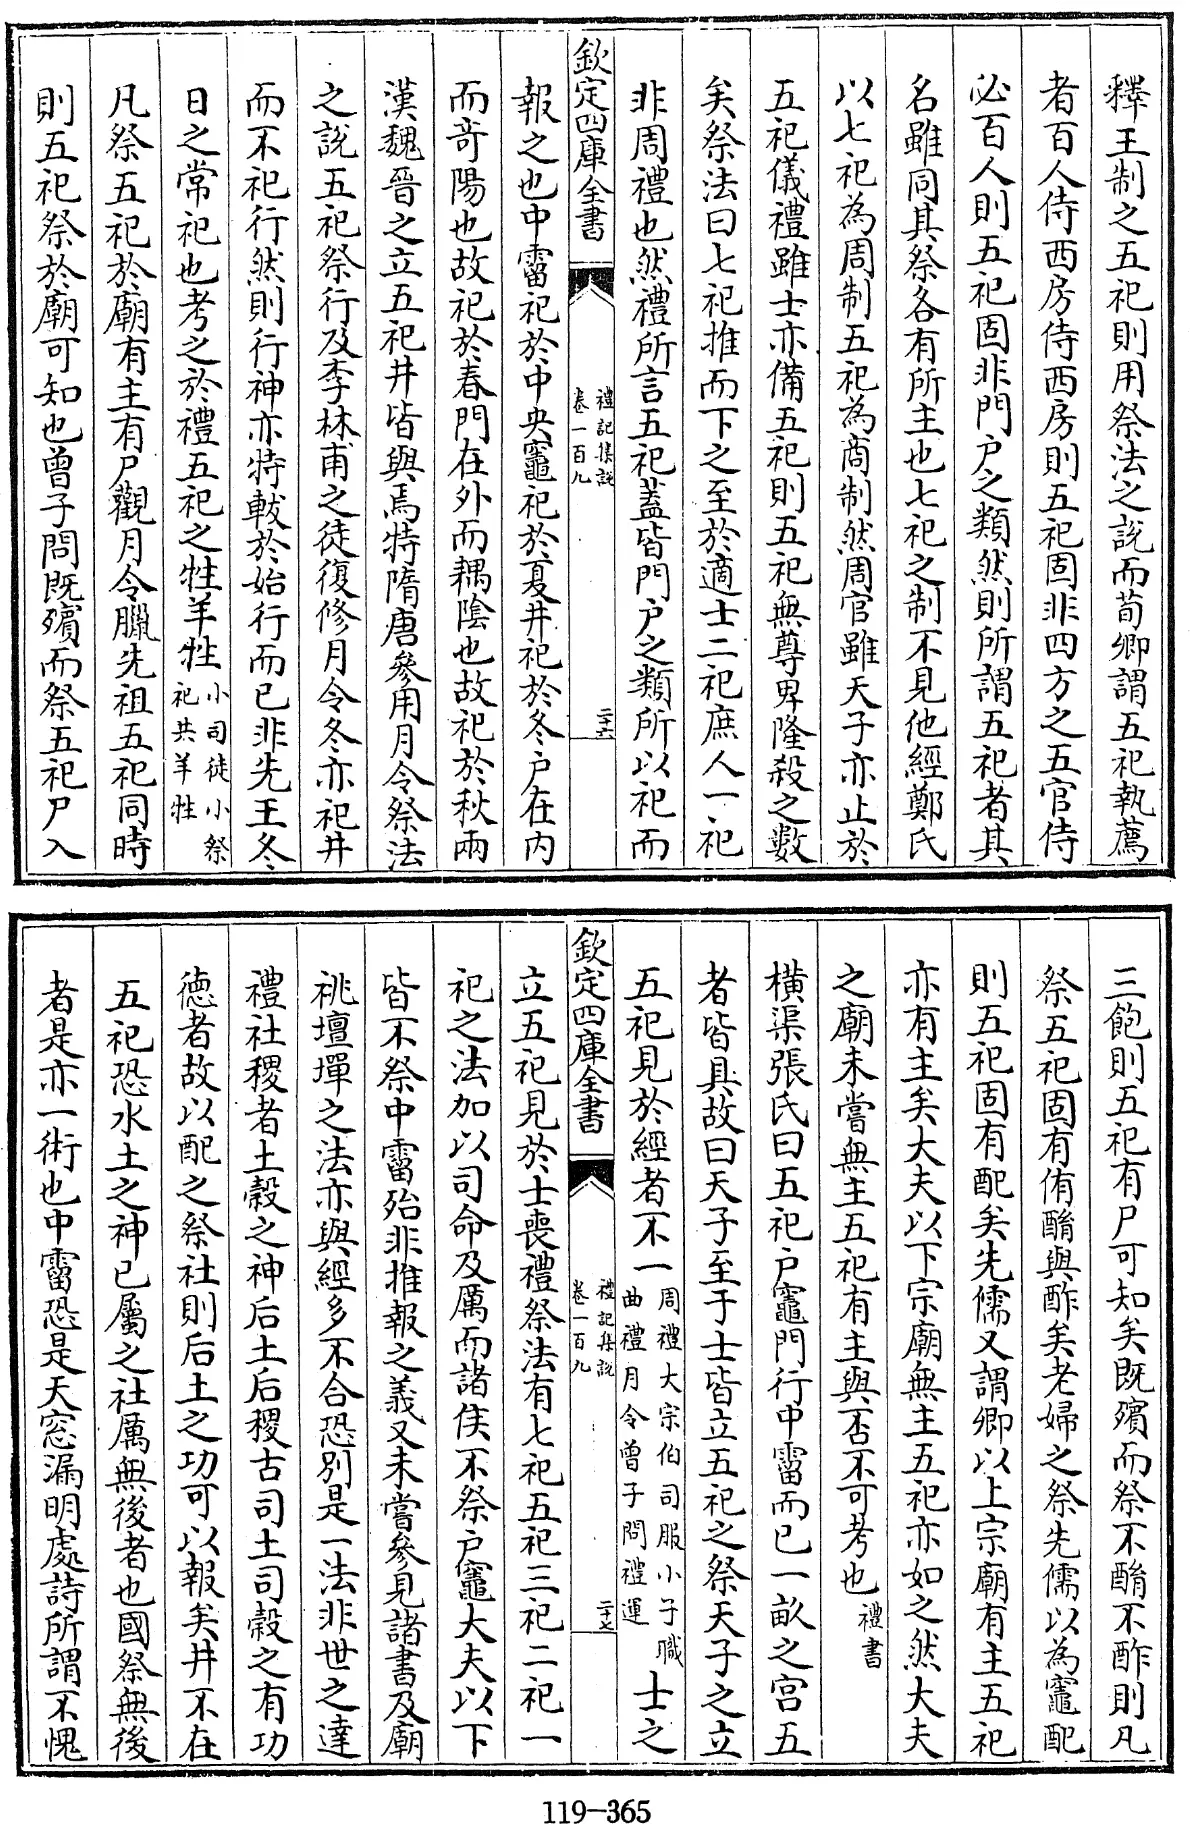 釋王制之五祀則用祭法之說而荀卿謂五祀執薦
者百人侍西房侍西房則五祀固非四方之五官侍
必百人則五祀固非門户之類然則所謂五祀者其
名雖同其祭各有所主也七祀之制不見他經鄭氏
以七祀為周制五祀為商制然周官雖天子亦止於
五祀儀禮雖士亦備五祀則五祀無尊卑隆殺之數
矣祭法曰七祀推而下之至於適士二祀庶人一祀
非周禮也然禮所言五祀葢皆門户之類所以祀而
欽定四庫全書
禮記集說
卷一百九
二十六
報之也中霤祀於中央竈祀於夏井祀於冬户在内
而竒陽也故祀於春門在外而耦陰也故祀於秋兩
漢魏晉之立五祀井皆與焉特隋唐參用月令祭法
之說五祀祭行及李林甫之徒復修月令冬亦祀井
而不祀行然則行神亦特軷於始行而已非先王冬
日之常祀也考之於禮五祀之牲羊牲小司徒小祭祀共羊牲
凡祭五祀於廟有主有尸觀月令臘先祖五祀同時
則五祀祭於廟可知也曾子問既殯而祭五祀尸入
三飽則五祀有尸可知矣既殯而祭不酳不酢則凡
祭五祀固有侑酳與酢矣老婦之祭先儒以為竈配
則五祀固有配矣先儒又謂卿以上宗廟有主五祀
亦有主矣大夫以下宗廟無主五祀亦如之然大夫
之廟未嘗無主五祀有主與否不可考也禮書
橫渠張氏曰五祀户竈門行中霤而已一畝之宫五
者皆具故曰天子至于士皆立五祀之祭天子之立
五祀見於經者不一周禮大宗伯司服小子職曲禮月令曾子問禮運士之
欽定四庫全書
禮記集說
卷一百九
二十七
立五祀見於士喪禮祭法有七祀五祀三祀二祀一
祀之法加以司命及厲而諸侯不祭户竈大夫以下
皆不祭中霤殆非推報之義又未嘗參見諸書及廟
祧壇墠之法亦與經多不合恐别是一法非世之達
禮社稷者土榖之神后土后稷古司土司榖之有功
德者故以配之祭社則后土之功可以報矣井不在
五祀恐水土之神已屬之社厲無後者也國祭無後
者是亦一術也中霤恐是天窓漏明處詩所謂不愧
119-365